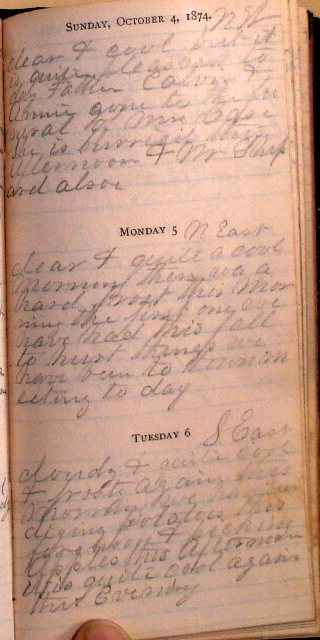 SUNDAY, OCTOBER 4, 1874. N St
clear & cool but it
is quite pleasant to
day Father Calvin &
Annie gone to the fu
neral of Mrs
she is burried this
afternoon & Mr Shep
ard also
MONDAY 5 N East
clear & quite a cool
morning there was a
hard frost this Mor
ning the first one we
have had this fall
to hurt things we
have been to
ecting to day
TUESDAY 6 S East
cloudy & quite cool
& frosty again this
Morning we have been
diging potatoes this
forenoon & picking
apples this Afternoon
it is quite cool again
this Evening